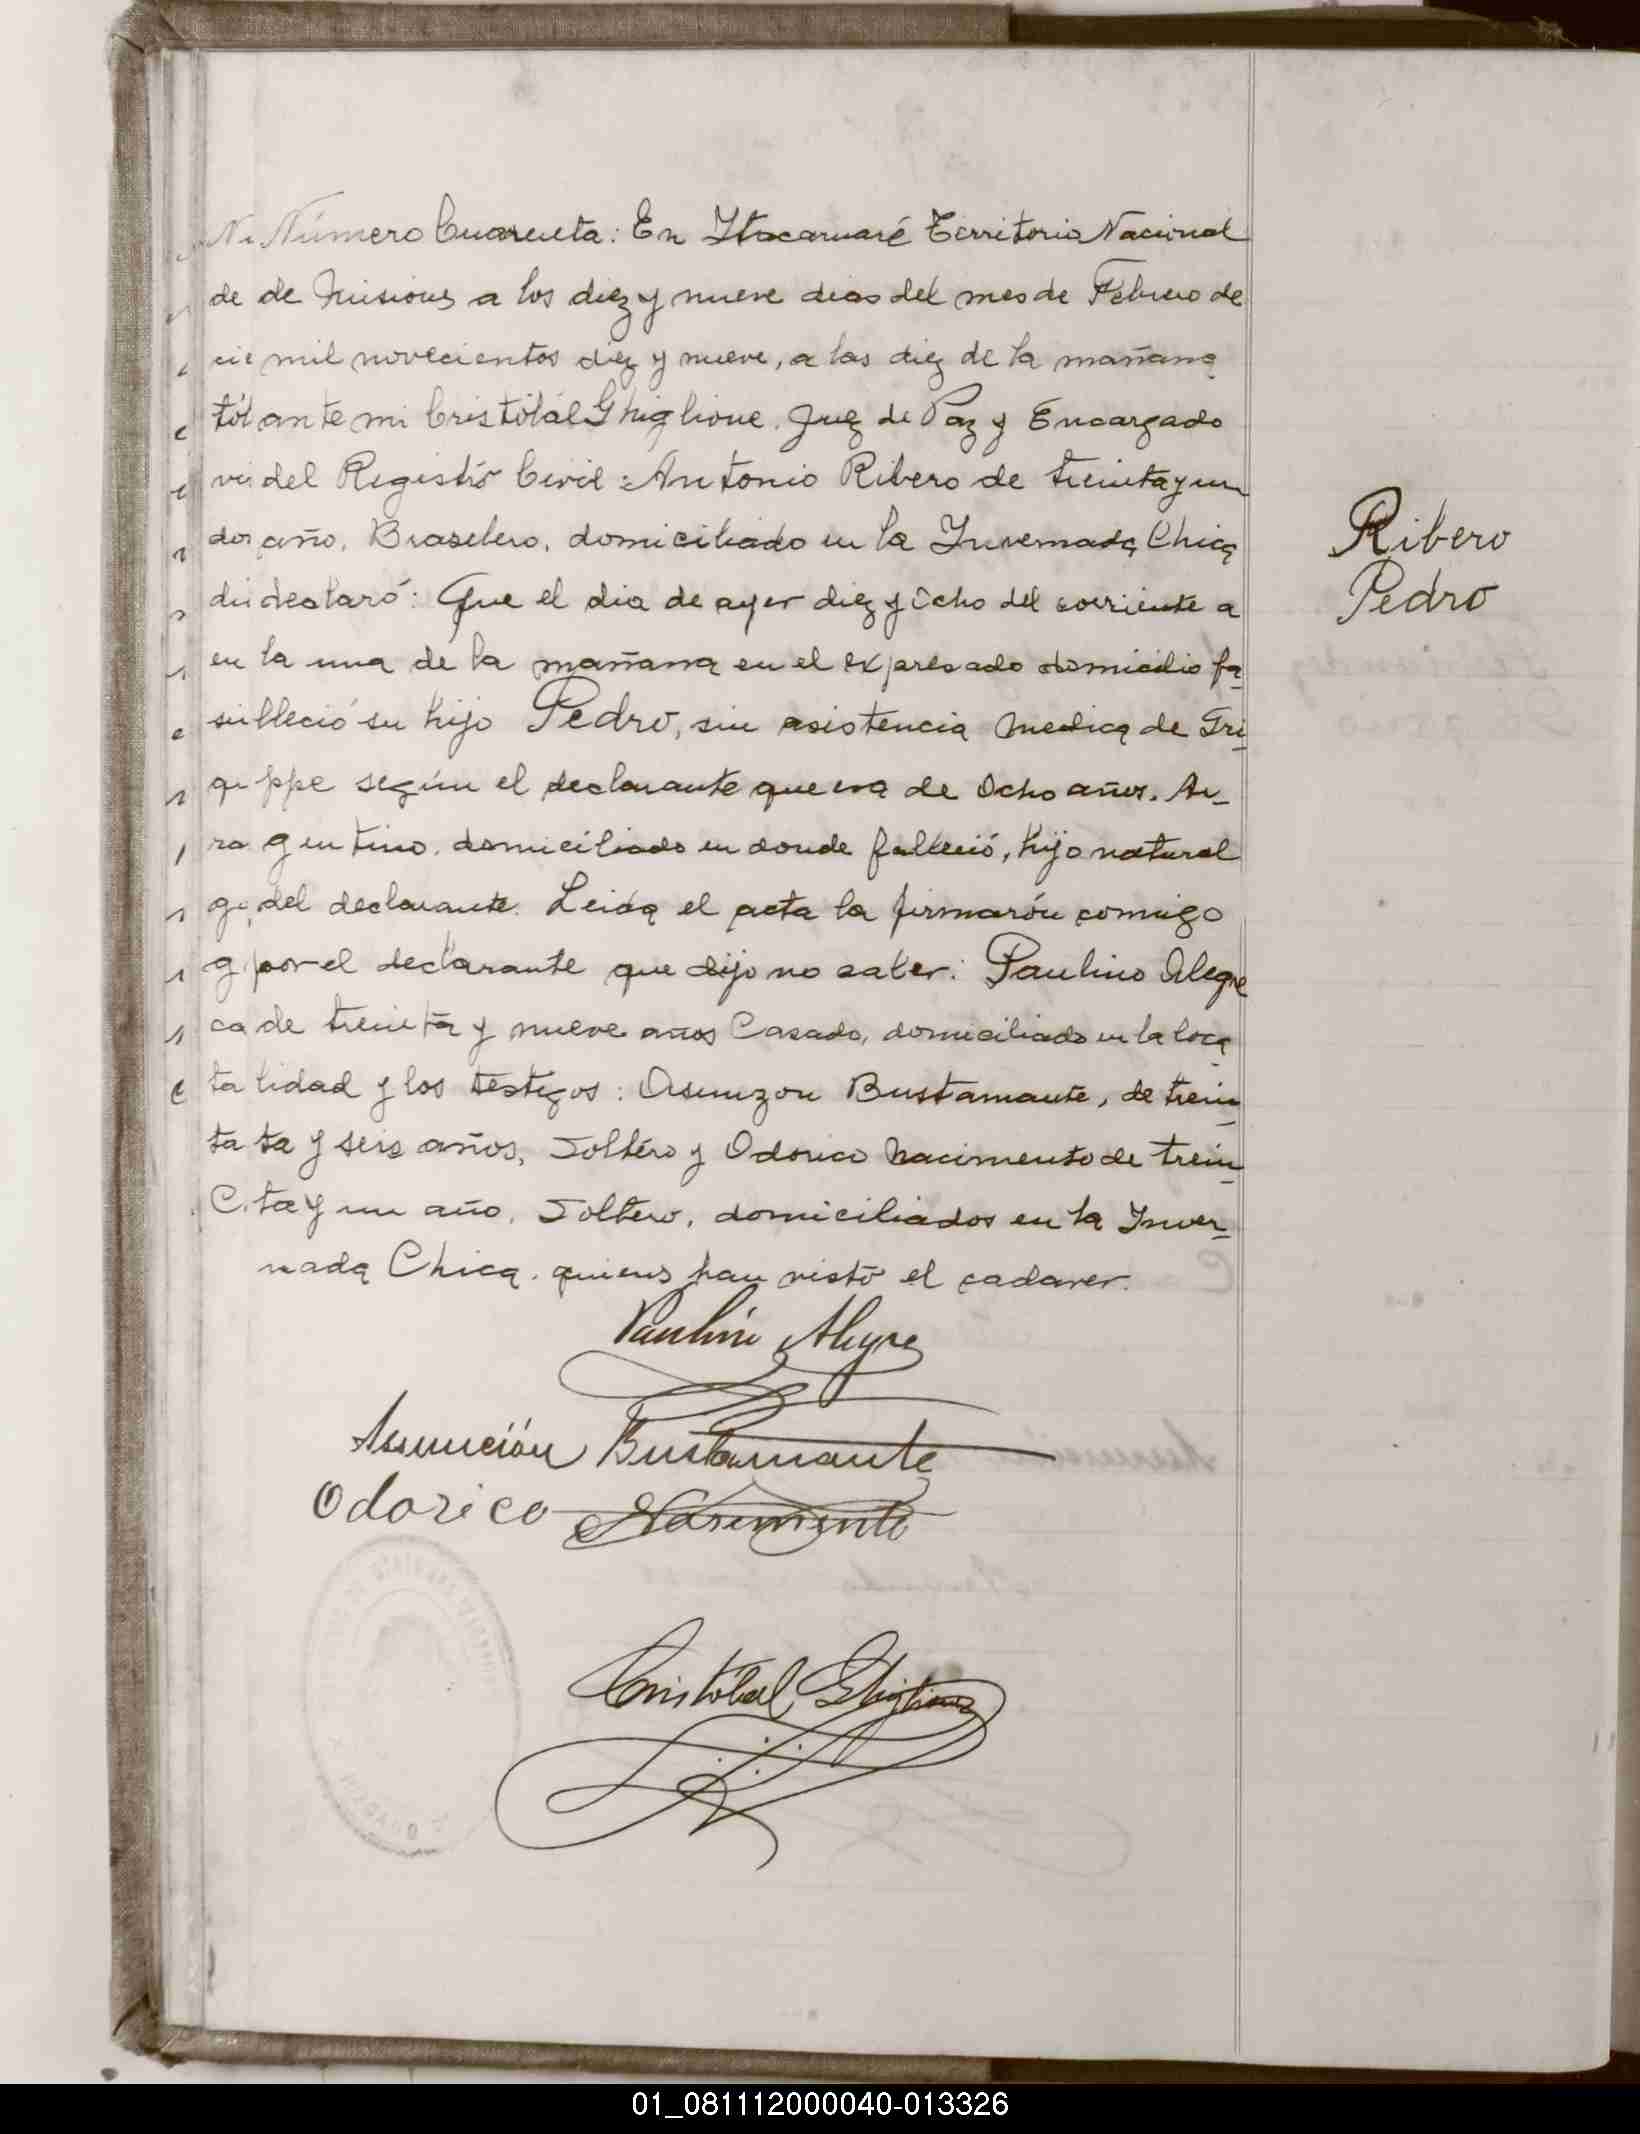 Número Cuarenta: En Itacaruaré Territorio Nacional
de Misiones a los diez y nueve dias del mes de Febrero de
mil novecientos diez y nueve, a las diez de la mañana
ante mi Cristóbal Ghiglione. Juez de Paz y Encargado
del Registro Civil: Antonio Ribero de treinta y un
año, Brasilero, domiciliado en la Invernada Chica
declaró: Que el dia de ayer diez y ocho del corriente a
la una de la mañana en el expresado domicilio fa_
lleció su hijo Pedro, sin asistencia medica de Gri_
ppe según el declarante que era de Ocho años. Ar_
gentino. domiciliado en donde falleció, hijo natural
del declarante. Leida el acta la firmarón conmigo
por el declarante que dijo no saber: Paulino Alegre
de treinta y nueve años Casado, domiciliado en la loca
lidad y los testigos: Asunzon Bustamante, de trein_
ta y seis años, Soltero y Odorico Nacimento de trein_
ta y un año, Soltero, domiciliados en la Inver_
nada Chica. quienes han visto el cadaver.
Ribero
Pedro
Paulino Alegre
Asunción Bustamante
Odorico Nasimento
Cristóbal Ghiglione
01_081112000040-013326